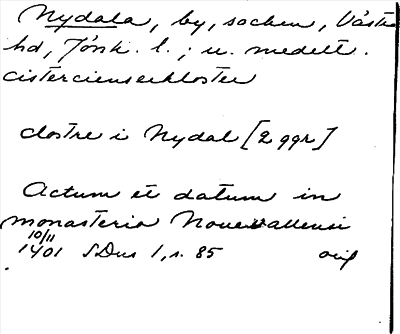 Nydala, by, socken, Västra
hd, Jönk. l.; u. medelt.
cisterciensekloster
clostre i Nydal [2 ggr]
Actum et datum in
monasterio Nouevallensi
10/11
1401 SDns 1, s. 85 orig